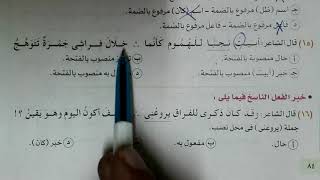 أ اسم (ظل) مرفوع بالضمة - اسم (كان) مرفوع بالضمة.
د فاعل مرفوع بالضمة - فاعل مرفوع بالضمة.
(١٥) قال الشاعر: أبيت نجيا للهموم كأنما ∴ خلال فراشي جمرة تتوهج
أ حال منصوب بالفتحة. ب منصوب بالفتحة.
ج خبر (أبيت) منصوب بالفتحة. د مفعول به منصوب بالفتحة.
• خبر الفعل الناسخ فيما يلى:
(١٦) قال الشاعر: وقد كان ذكرى للفراق يروعنى ∴ فكيف أكون اليوم وهو يقين؟!
جملة (يروعنى) فى محل نصب.
أ حال. ب مفعول به. د خبر (كان).
٨٤